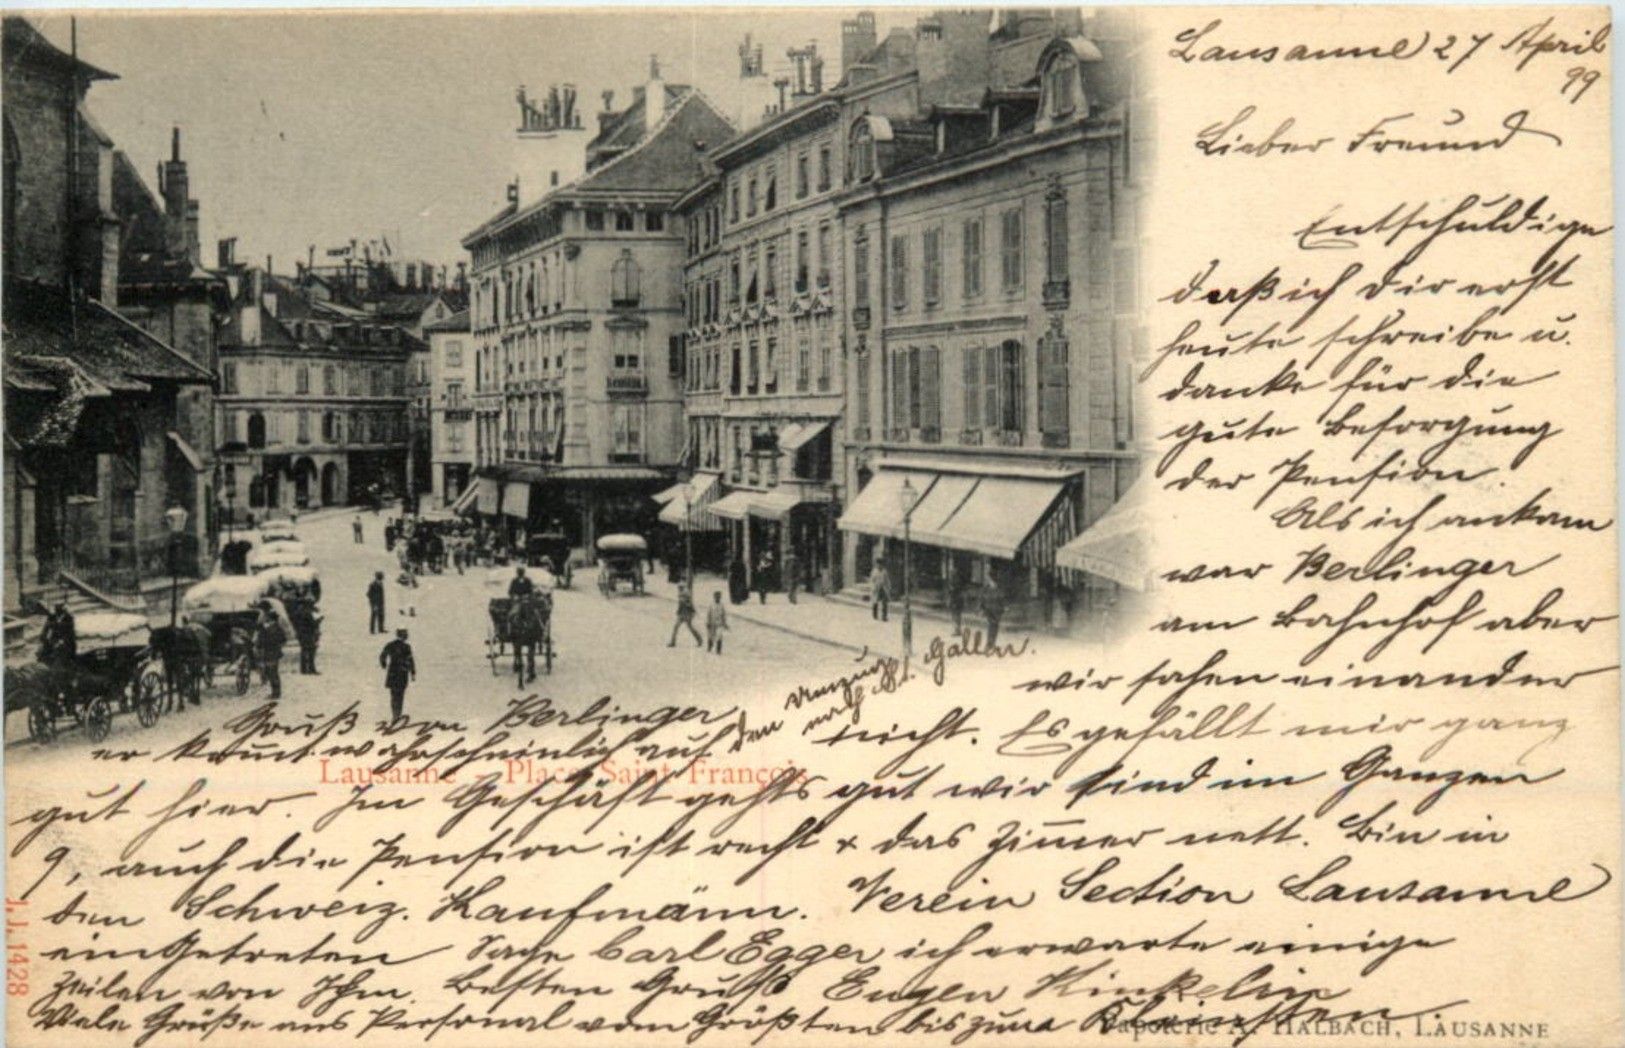 Lausanne 27 April
99
Lieber Freund
Entschuldige
daß ich dir erst
heute schreibe u.
danke für die
gute Besorgung
der Pension.
Als ich ankam
war Berlinger
am Bahnhof aber
wir sahen einander
nicht. Es gefällt mir ganz
gut hier. Im Geschäft gehts gut wir sind im Ganzen
9, auch die Pension ist recht & das Zimmer nett. Bin in
den Schweiz. Kaufmänn. Verein Section Lausanne
eingetreten Sage Carl Egger ich erwarte einige
Zeilen von Ihm. Besten Gruß Eugen Kinkelin
Viele Grüße ans Personal vom Größten bis zum Kleinsten.
Gruß von Berlinger
er kommt wahrscheinlich auf den Umzug
nach St. Gallen.
Lausanne - Place Saint François
J.J. 1428
Papeterie A. HALBACH, LAUSANNE